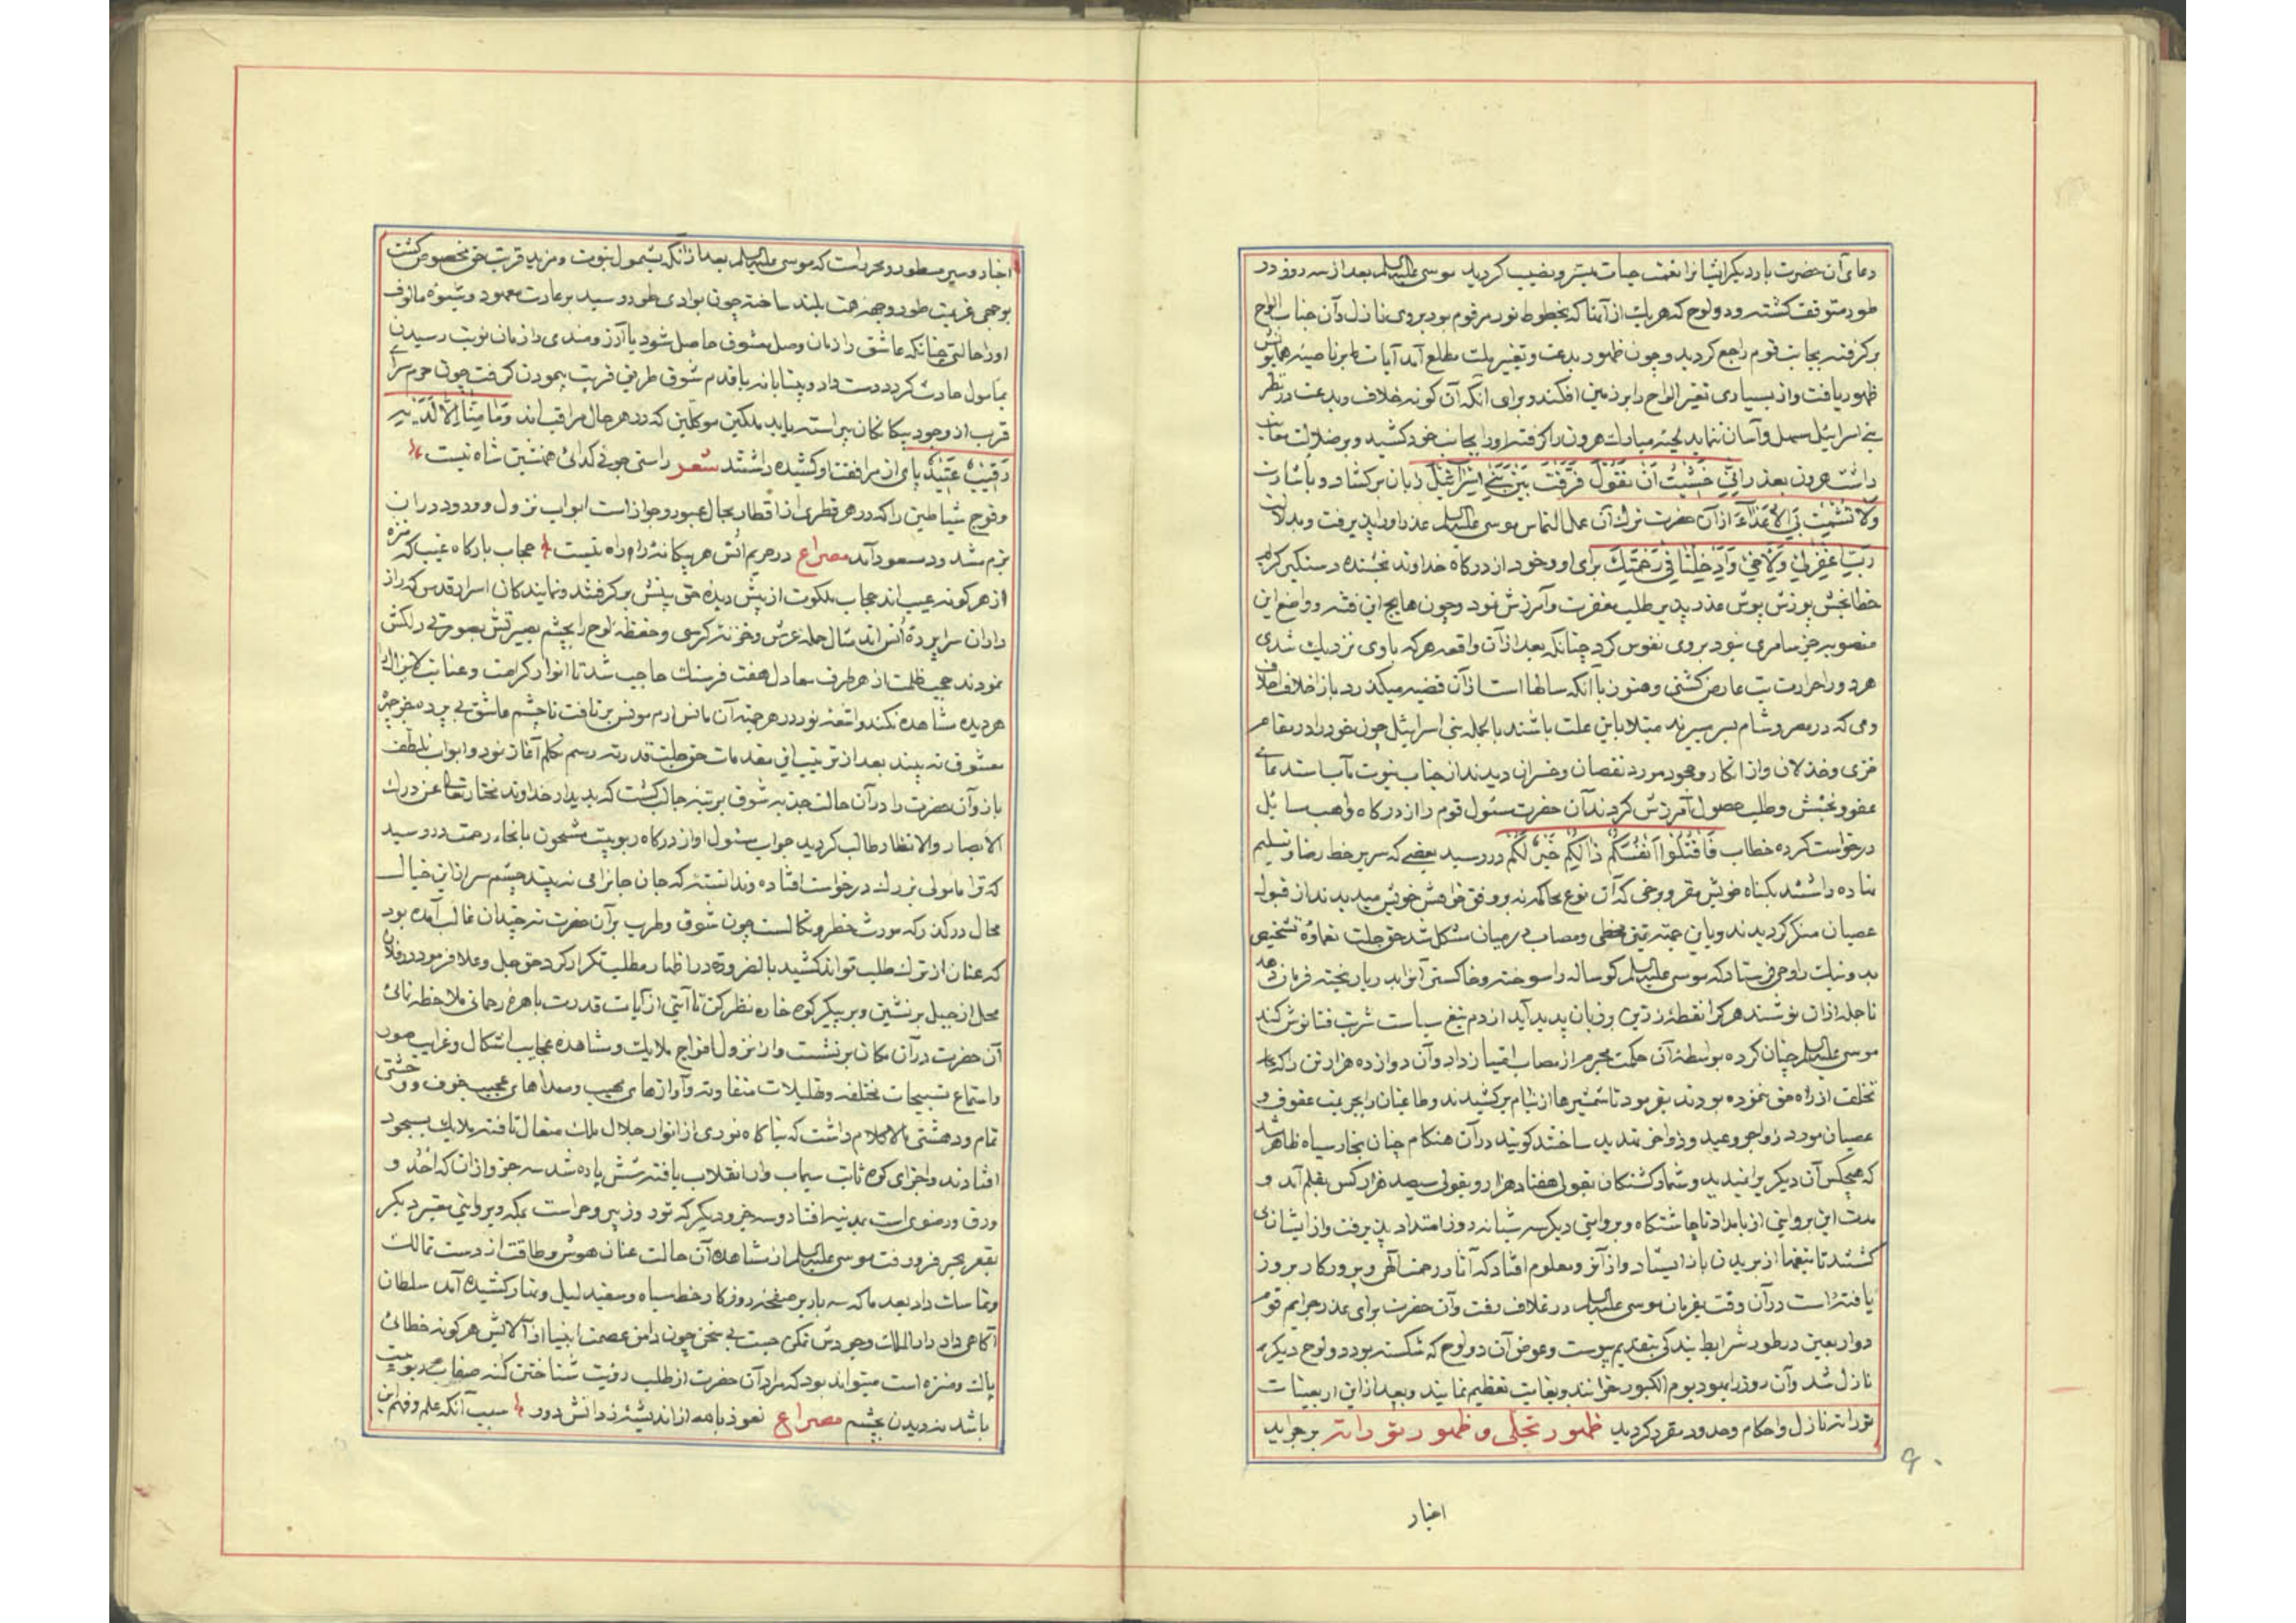 دعای آن حضرت بار دیگر ایشانرا نعمت حیات میسر و نصیب کردید موسی علیه السلم بعد از سه روز در
طور متوقف کشته و دو لوح که هر یك از آنها که بخطوط نور مرقوم بود بروی نازل و آن جناب الواح
برکرفته بجانب قوم راجع کردید و چون ظهور بدعت و تغییر ملت مطلع آمد آیات بر ناصیه همایونش
ظهور یافت و از بسیاری تغیر الواح را بر زمین افکند و برای آنکه آن کونه خلاف و بدعت در نظر
بنے اسرائیل سهل و آسان ننماید لحیه مبارك هرون را کرفته او را بجانب خود کشید و بر ضلالت معاتب
داشت هرون بعذر اِنِّی خَشِیْتُ اَنْ تَقُوْلَ فَرَّقْتَ بَیْنَ بَنِے اِسْرَآئِیْلَ زبان برکشاد و باشارت
وَلَا تُشْمِتْ بِیَ الْاَعْدَآءَ از آن حضرت ترك آن عمل التماس موسی علیه السلم عذر او را پذیرفت و بدلالت
رَبِّ اغْفِرْلِیْ وَلِاَخِیْ وَاَدْخِلْنَا فِیْ رَحْمَتِكَ برای او و خود از درکاه خداوند بخشنده دستکیر کریم
خطابخش پوزش پوش عذر پذیر طلب مغفرت و آمرزش نمود و چون هایج این فتنه و واضع این
منصوبه جز سامری نبود بروی نفوس کرد چنانکه بعد از آن واقعه هرکه با وی نزدیك شدی
هر دو را حرارت تب عارض کشتی و هنوز با آنکه سالها است از آن قضیه میکذرد باز اخلاف اخلاف
وی که در مصر و شام بسر میبرند مبتلا باین علت باشند بالجمله بنی اسرائیل چون خود را در مقام
خزی و خذلان و از انکار و جحود مورد نقصان و خسران دیدند از جناب نبوت مآب استدعاے
عفو و بخشش و طلب حصول آمرزش کردند آن حضرت مسئول قوم را از درکاه واهب سایل
درخواست کرده خطاب فَاقْتُلُوْا اَنْفُسَكُمْ ذٰلِكُمْ خَیْرٌ لَّكُمْ در رسید بعضے که سر بر خط رضا و تسلیم
نهاده داشتند بکناه خویش مقر و برخی که آن نوع محاکمه نه بر وفق خواهش خویش میدیدند از قبول
عصیان منکر کردیدند و باین جهته تمیز مخطی و مصاب در میان مشکل شد حق جلت نعماؤه تشخیص
بدو نیك را وحی فرستاد که موسی علیه السلم کوساله را سوخته و خاکستر آنرا بدریا ریخته فرمان دهد
تا جمله از ان نوشند هر کرا نقطهٔ زرین بر زبان پدید آید از دم تیغ سیاست شربت فنا نوش کند
موسی علیه السلم چنان کرده بواسطهٔ آن حکمت مجرم از مصاب امتیاز داد و آن دوازده هزار تن را که
تخلف از راه حق ننموده بودند بفرمود تا شمشیرها از نیام برکشیدند و طاغیان را بجریمت عقوق و
عصیان مورد زواجر وعید و زواخر تهدید ساختند کویند در آن هنکام چنان بخار سیاه ظاهر شد
که هیچکس آن دیکر برا ندیدید و شمار کشتکان بقولی هفتاد هزار و بقولی سیصد هزار کس بقلم آمد و
مدت این بروایتی از بامداد تا چاشتکاه و بروایتی دیکر سه شبانه روز امتداد پذیرفت و از ایشان می
کشتند تا تیغها از بریدن باز ایستاد و از آنرو معلوم افتاد که آثار رحمت الهی و پرورکار بروز
یافته است در آن وقت بفرمان موسی علیه السلم در غلاف رفت و آن حضرت برای عذر جرایم قوم
دو اربعین در طور شرایط بندکی بتقدیم پیوست و عوض آن دو لوح که شکسته بود دو لوح دیکر
نازل شد و آن روز را یهود یوم الکبور خوانند و بغایت تعظیم نمایند و بعد از این اربعینات
تورات نازل و احکام و حدود مقرر کردید ظهور تجلی و ظهور تورات بر جراید
۹۰
اخبار
اخبار و سیر مسطور و محرر است که موسی علیه السلم بعد از آنکه بشمول نبوت و مزید قربت حق مخصوص کشت
بوحی عزیمت طور وجهه همت بلند ساخته چون بوادی طور رسید بر عادت معهود و شیوه مالوف
او را حالتی چنانکه عاشق را زمان وصل معشوق حاصل شود یا آرزومندی را زمان نوبت رسیدن
بمامول حادث کردد دست داد و بیتابانه با قدم شوق طریق قربت پیمودن کرفت چون حرم سراے
قرب از وجود بیکانکان پیراسته باید ملکین موکلین که در هر حال مراقب اند وَمَا مِنَّا اِلَّا لَدَیْهِ
رَقِیْبٌ عَتِیْدٌ پای از مرافقت او کشیده داشتند شعر راستی جو نے کدائی همنشین شاه نیست
و فوج شیاطین را که در هر قطری از اقطار مجال عبور و جواز است ابواب نزول و ورود در ان
بزم مسدود آمد مصراع در حریم انس هر بیکانهٔ را راه نیست حجاب بارکاه غیب که منزه
از هر کونه عیب اند حجاب ملکوت از پیش دیدهٔ حق بینش برکرفتند و نمایندکان اسرار قدس که راز
داران سراپردهٔ انس اند مثال حمله عرش و خزنه کرسی و حفظهٔ لوح را بچشم بصیرتش بصورتے دلکش
نمودند حجب ظلمت از هر طرف معادل هفت فرسنك حاجب شد تا انوار کرامت و عنایت لایزال
هر دیده مشاهده نکند و اشعهٔ نور در هر جهته آن مانس ارم مونس بر تافت تا چشم عاشق بے پرده بجز چهرهٔ
معشوق نه بیند بعد از ترتیب این مقدمات حق جلت قدرته رسم تکلم آغاز نمود و ابواب تلطف
باز و آن حضرت را در آن حالت جذبهٔ شوق بر تبهٔ جالب کشت که بدیدار خداوند مختار تعالی عن درك
الابصار و الانظار طالب کردید جواب مسئول او از درکاه ربوبیت مشحون بانحاء رحمت در رسید
که ترا مامولی بزرك در خواست افتاده و ندانستهٔ که جان جانرا می نه بیند چشم سر از این خیال
محال در کذر که مورث خطر و نکالست چون شوق و طرب بر آن حضرت نه چندان غالب آمده بود
که عنان از ترك طلب تواند کشید بالضروره در اظهار مطلب تکرار کرد حق جل و علا فرمود در فلان
محل از جبل برنشین و بر پیکر کوه خاره نظر کن تا آیتی از آیات قدرت باهرهٔ رحمانی ملاحظه نمائی
آن حضرت در آن مکان برنشست و از نزول افواج ملایك و مشاهده عجایب اشکال و غرایب صور
و استماع تسبیحات مختلفه و تهلیلات متفاوته و آوازهای مهیب و صداهای عجیب خوف و وحشتی
تمام و دهشتی مالاکلام داشت که بناکاه نوری از انوار جلال ملك متعال تافته ملایك بسجود
افتادند و اجزای کوه ثابت سیماب وار انقلاب یافته شش پاره شد سه جزو از ان که احد و
ورق و رضوی است بمدینه افتاد و سه جزو دیکر که ثور و ثبیر و حراست بمکه و بروایتی بقعر دیکر
بقعر بحر فرو رفت موسی علیه السلم از مشاهدهٔ آن حالت عنان هوش و طاقت از دست تمالك
و تماسك داد بعد ما که سه بار بر صفحهٔ روزکار خط سیاه و سفید لیل و نهار کشیده آمد سلطان
آکاهی داد دار الملك وجودش تمکن جست بے سخن چون دامن عصمت انبیا از آلایش هر کونه خطائی
پاك و منزه است میتواند بود که مراد آن حضرت از طلب رؤیت شناختن کنه صفات ربوبیت
باشد نه دیدن بچشم مصراع نعوذ بالله از اندیشهٔ ز دانش دور سبب آنکه علم و فهم این